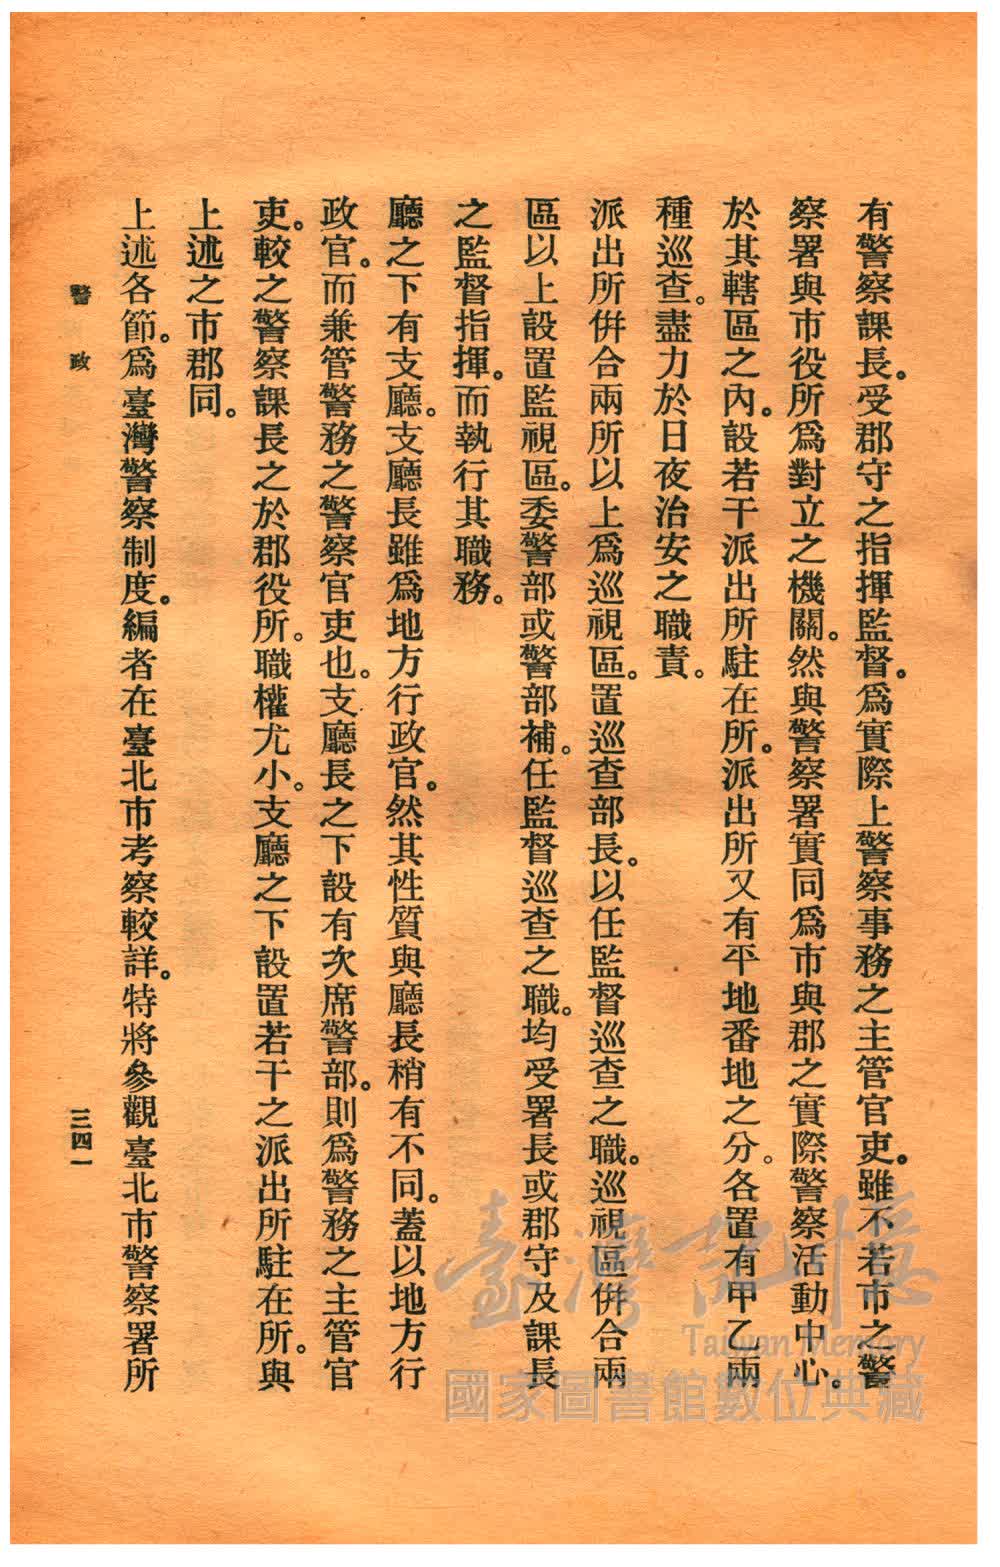 有警察課長。受郡守之指揮監督。爲實際上警察事務之主管官吏。雖不若市之警
察署與市役所爲對立之機關。然與警察署實同爲市與郡之實際警察活動中心。
於其轄區之內。設若干派出所駐在所。派出所又有平地番地之分。各置有甲乙兩
種巡查。盡力於日夜治安之職責。
派出所倂合兩所以上爲巡視區。置巡查部長。以任監督巡查之職。巡視區倂合兩
區以上設置監視區。委警部或警部補。任監督巡查之職。均受署長或郡守及課長
之監督指揮。而執行其職務。
廳之下有支廳。支廳長雖爲地方行政官。然其性質與廳長稍有不同。蓋以地方行
政官。而兼管警務之警察官吏也。支廳長之下設有次席警部。則爲警務之主管官
吏。較之警察課長之於郡役所。職權尤小。支廳之下設置若干之派出所駐在所。與
上述之市郡同。
上述各節。爲臺灣警察制度。編者在臺北市考察較詳。特將參觀臺北市警察署所
警政
三四一
臺灣記憶
Taiwan Memory
國家圖書館數位典藏